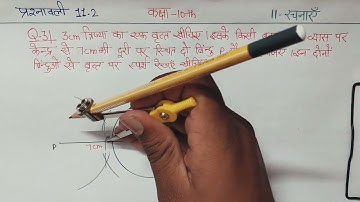 प्रश्नावली 11.2 कक्षा-10th 11-रचनाएँ
Q.3) 3cm त्रिज्या का एक वृत्त खींचिए। इसके किसी व्यास पर
केन्द्र से 7cm की दूरी पर स्थित दो बिन्दु P इन दोनों
बिन्दुओं से वृत्त पर स्पर्श रेखाएँ
P 7cm